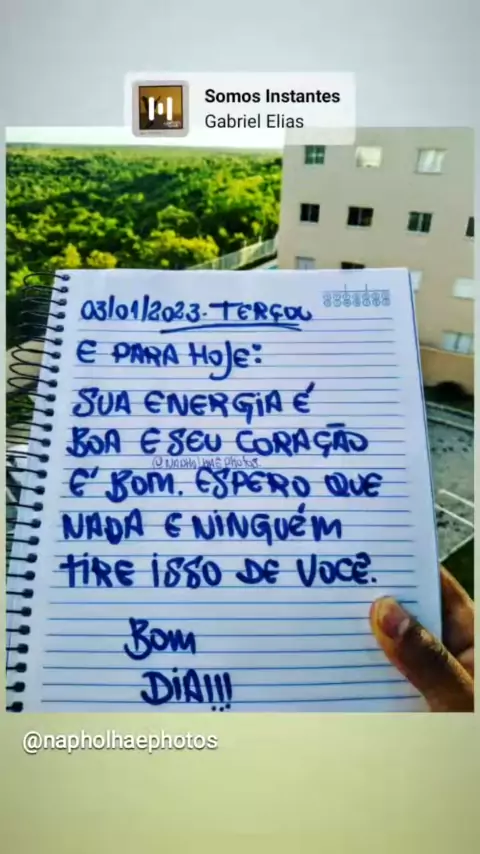 Somos Instantes
Gabriel Elias
03/01/2023. TERÇOU
E PARA HOJE:
SUA ENERGIA É
BOA E SEU CORAÇÃO
@NAPHOLHAEPhotos.
É BOM. ESPERO QUE
NADA E NINGUÉM
TIRE ISSO DE VOCÊ.
BOM
DIA!!!
@napholhaephotos